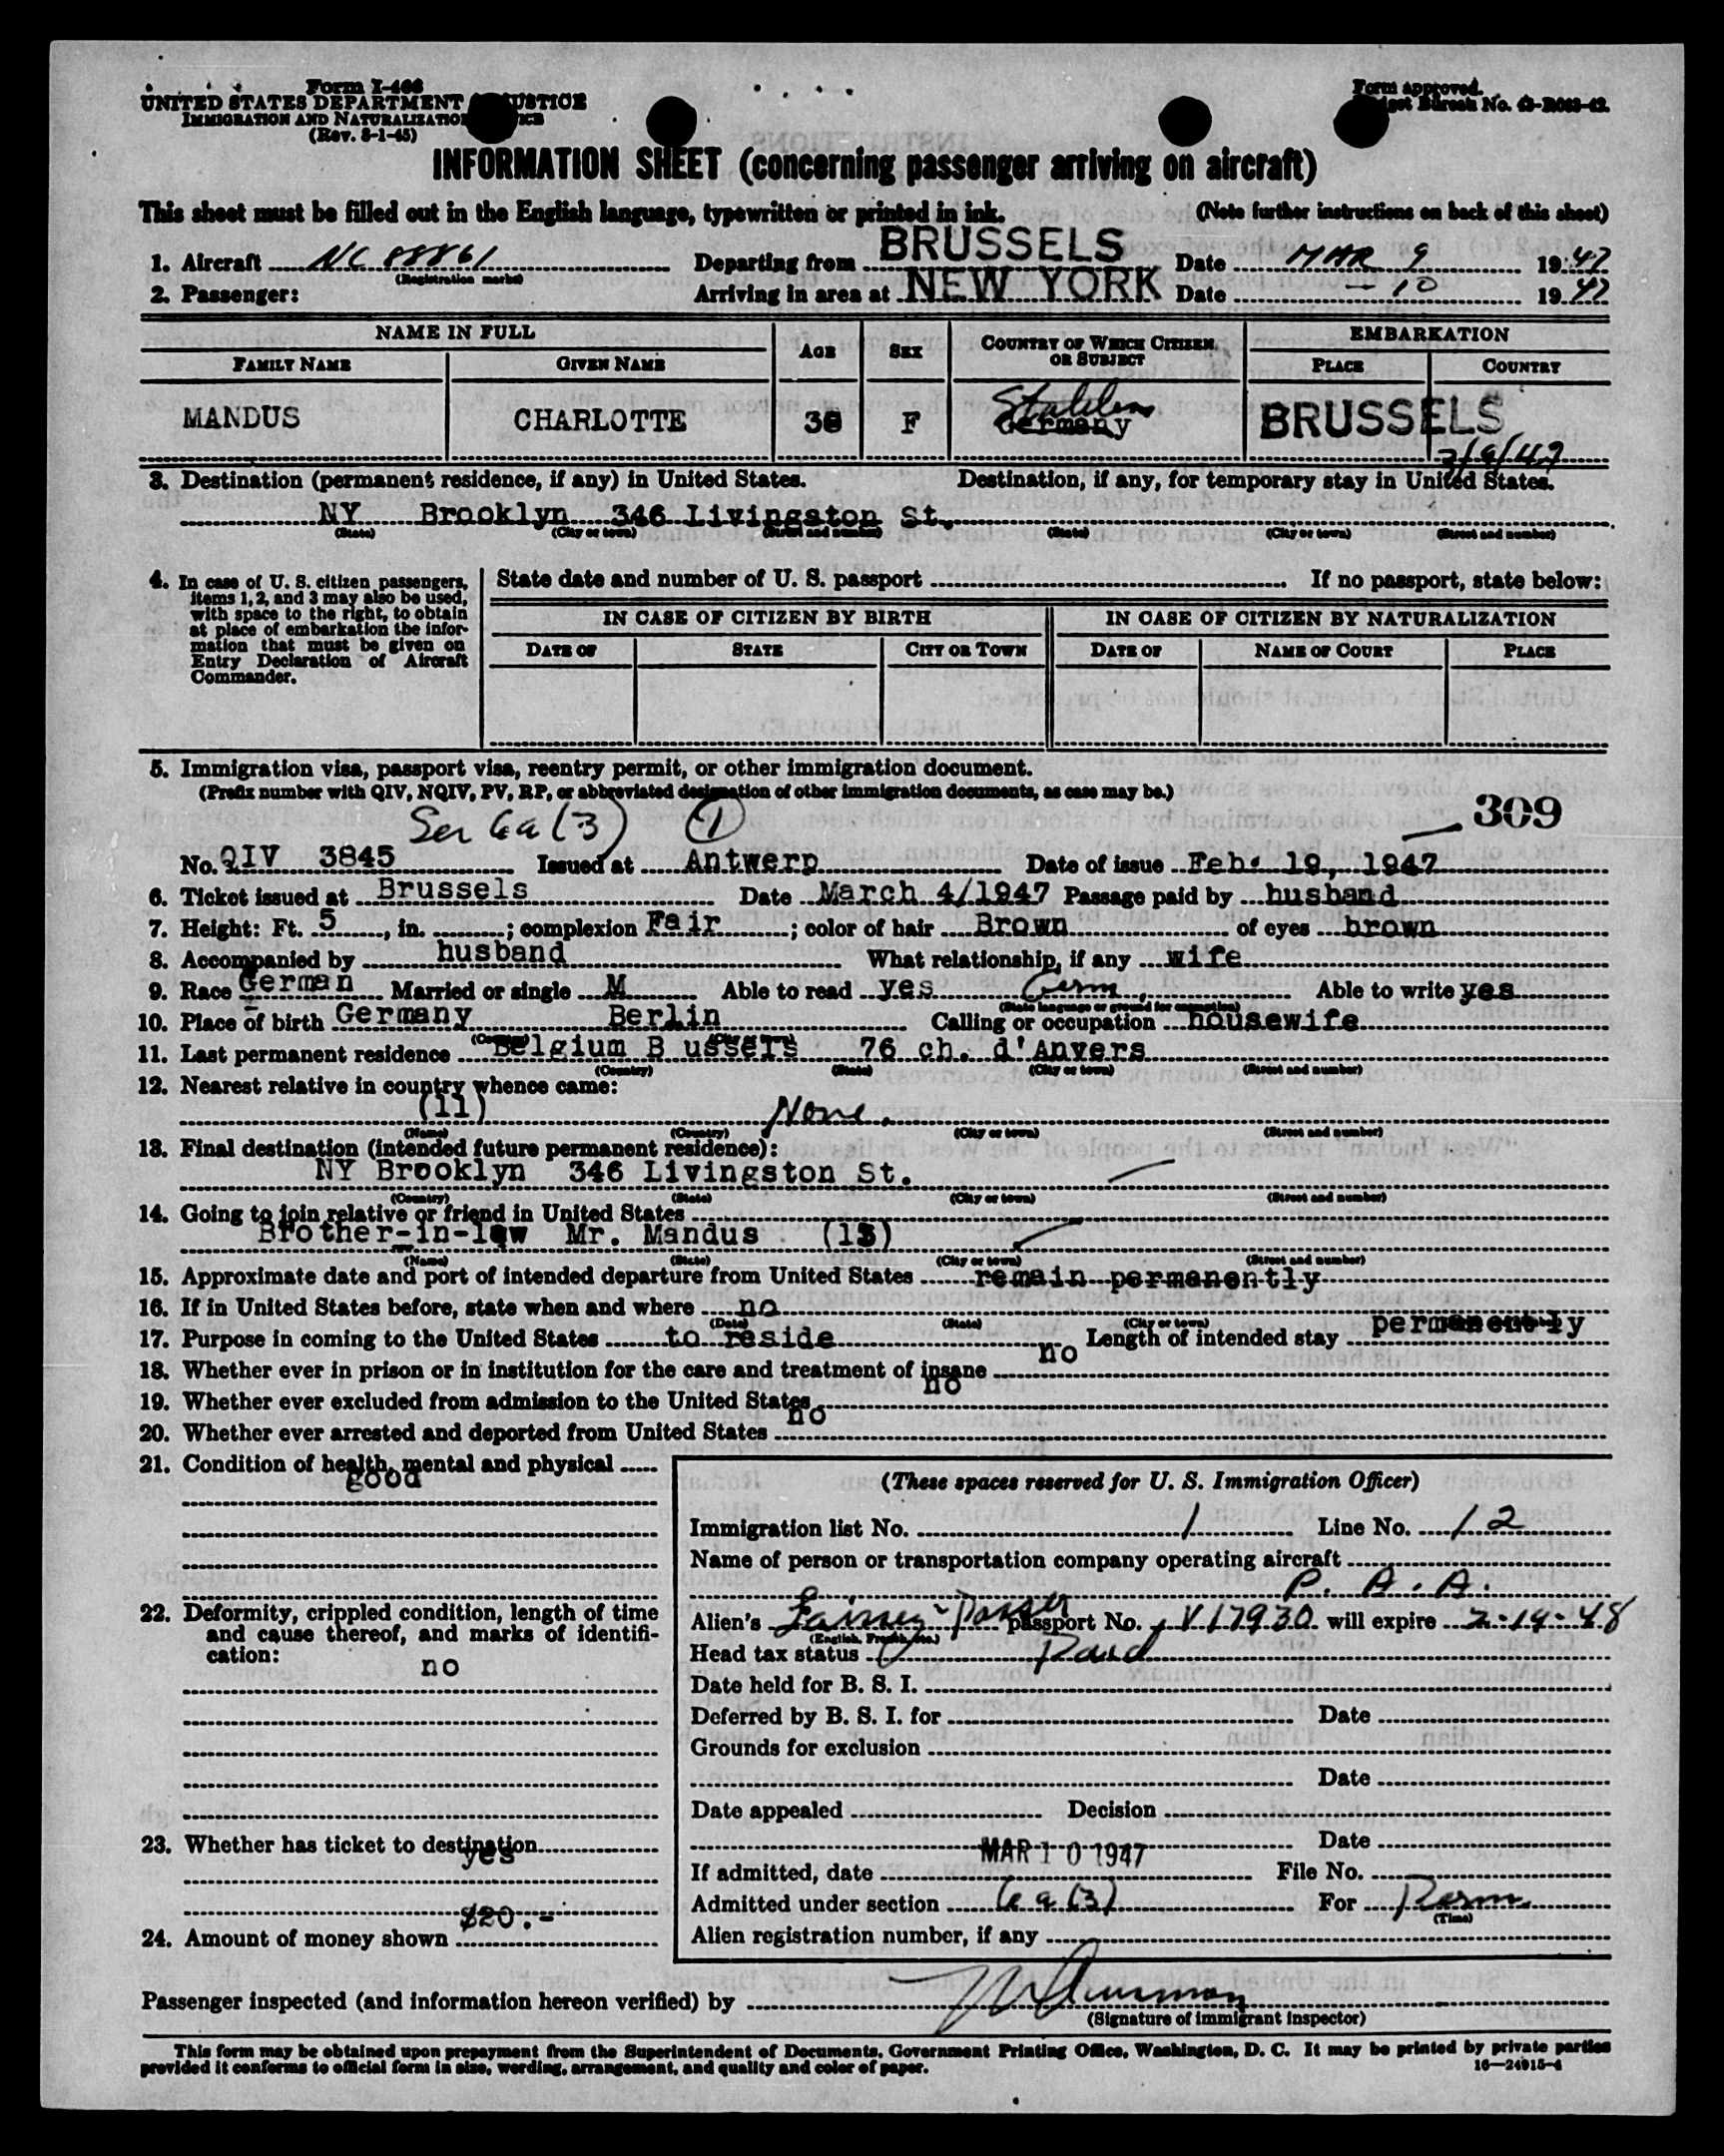 Form I-466
UNITED STATES DEPARTMENT JUSTICE
IMMIGRATION AND NATURALIZATION
(Rev. 8-1-45)
Form approved.
Budget Bureau No. 43-R063-42.
INFORMATION SHEET (concerning passenger arriving on aircraft)
This sheet must be filled out in the English language, typewritten or printed in ink. (Note further instructions on back of this sheet)
1. Aircraft NC 88861 Departing from BRUSSELS Date MAR 9 1947
(Registration marks)
2. Passenger: Arriving in area at NEW YORK Date - 10 1947
NAME IN FULL AGE SEX COUNTRY OF WHICH CITIZEN OR SUBJECT EMBARKATION
FAMILY NAME GIVEN NAME PLACE COUNTRY
Stateless
MANDUS CHARLOTTE 38 F Germany BRUSSELS
3/9/47
3. Destination (permanent residence, if any) in United States. Destination, if any, for temporary stay in United States.
NY Brooklyn 346 Livingston St.
(State) (City or town) (Street and number) (State) (City or town) (Street and number)
4. In case of U. S. citizen passengers, items 1, 2, and 3 may also be used, with space to the right, to obtain at place of embarkation the information that must be given on Entry Declaration of Aircraft Commander.
State date and number of U. S. passport If no passport, state below:
IN CASE OF CITIZEN BY BIRTH IN CASE OF CITIZEN BY NATURALIZATION
DATE OF STATE CITY OR TOWN DATE OF NAME OF COURT PLACE
5. Immigration visa, passport visa, reentry permit, or other immigration document.
(Prefix number with QIV, NQIV, PV, RP, or abbreviated designation of other immigration documents, as case may be.)
Sec 6a (3) 1 309
No. QIV 3845 Issued at Antwerp Date of issue Feb. 19, 1947
6. Ticket issued at Brussels Date March 4/1947 Passage paid by husband
7. Height: Ft. 5, in. ; complexion Fair ; color of hair Brown of eyes brown
8. Accompanied by husband What relationship, if any wife
9. Race German Married or single M Able to read yes Germ. Able to write yes
(State language or ground for exemption)
10. Place of birth Germany Berlin Calling or occupation housewife
(Country) (City or town)
11. Last permanent residence Belgium B ussels 76 ch. d'Anvers
(Country) (State) (City or town) (Street and number)
12. Nearest relative in country whence came:
(11) None.
(Name) (Country) (City or town) (Street and number)
13. Final destination (intended future permanent residence):
NY Brooklyn 346 Livingston St.
(Country) (State) (City or town) (Street and number)
14. Going to join relative or friend in United States
Brother-in-law Mr. Mandus (13)
(Name) (State) (City or town) (Street and number)
15. Approximate date and port of intended departure from United States remain permanently
16. If in United States before, state when and where no
(Date) (State) (City or town)
17. Purpose in coming to the United States to reside Length of intended stay permanently
18. Whether ever in prison or in institution for the care and treatment of insane no
19. Whether ever excluded from admission to the United States no
20. Whether ever arrested and deported from United States no
21. Condition of health, mental and physical
good
22. Deformity, crippled condition, length of time and cause thereof, and marks of identification:
no
23. Whether has ticket to destination
yes
$20.-
24. Amount of money shown
(These spaces reserved for U. S. Immigration Officer)
Immigration list No. 1 Line No. 12
Name of person or transportation company operating aircraft
P. A. A.
Alien's passport No. V17930 will expire 2-14-48
(English, French, etc.)
Head tax status Paid
Date held for B. S. I.
Deferred by B. S. I. for Date
Grounds for exclusion
Date
Date appealed Decision
Date
MAR 10 1947
If admitted, date File No.
Admitted under section 6a(3) For Perm
(Time)
Alien registration number, if any
Passenger inspected (and information hereon verified) by
(Signature of immigrant inspector)
This form may be obtained upon prepayment from the Superintendent of Documents, Government Printing Office, Washington, D. C. It may be printed by private parties
provided it conforms to official form in size, wording, arrangement, and quality and color of paper. 16—24915-4